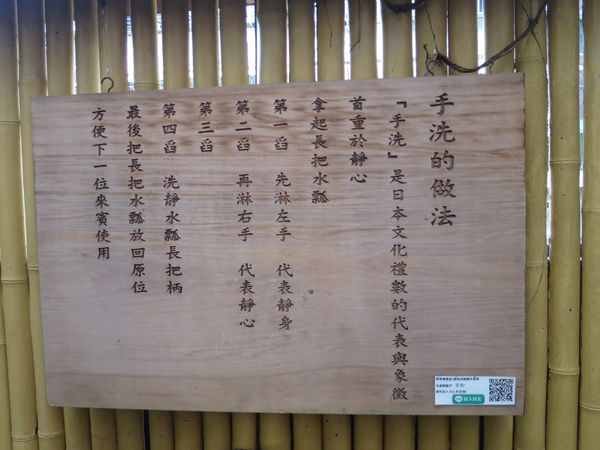 手洗的做法
『手洗』是日本文化禮數的代表與象徵
首重於靜心
拿起長把水瓢
第一舀 先淋左手 代表靜身
第二舀 再淋右手 代表靜心
第三舀
第四舀 洗靜水瓢長把柄
最後把長把水瓢放回原位
方便下一位來賓使用
加入好友